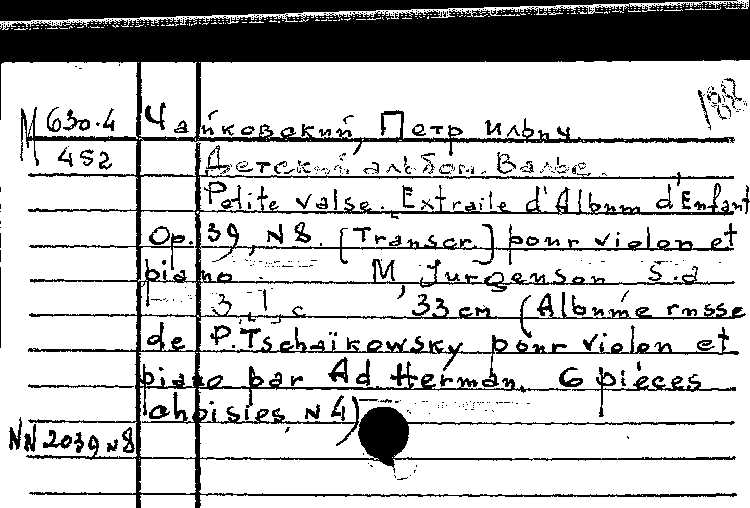 188
М 630.4 Чайковский, Петр Ильич.
452 Детский альбом. Вальс.
Petite valse. Extraile d'Album d'Enfant
Op. 39, N8. [Transcr.] pour violon et
piano. M, Jurgenson S.a
3, 1, c 33 cm (Albume russe
de P. Tschaïkowsky pour violon et
piano par Ad Herman. 6 pièces
choisies, N 4)
NN 2039 N8